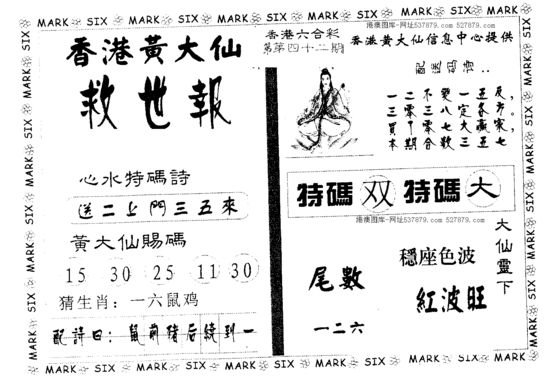 MARK SIX MARK SIX MARK SIX MARK SIX MARK SIX
香港黃大仙
救世報
心水特碼詩
送二上門三五來
黃大仙賜碼
15 30 25 11 30
猜生肖：一六鼠鸡
配詩曰：鼠前猪后繞到一
香港六合彩
第四十二期
港澳图库-网址537879.com 527879.com
香港黃大仙信息中心提供
一二不變一五反，
三零三八定各
買甲零七大贏家
本期合數三五七
特碼 双 特碼 大
港澳图库-网址537879.com 527879.com
尾數
一二六
穩座色波
紅波旺
大仙靈下
MARK SIX MARK SIX MARK SIX MARK SIX MARK SIX